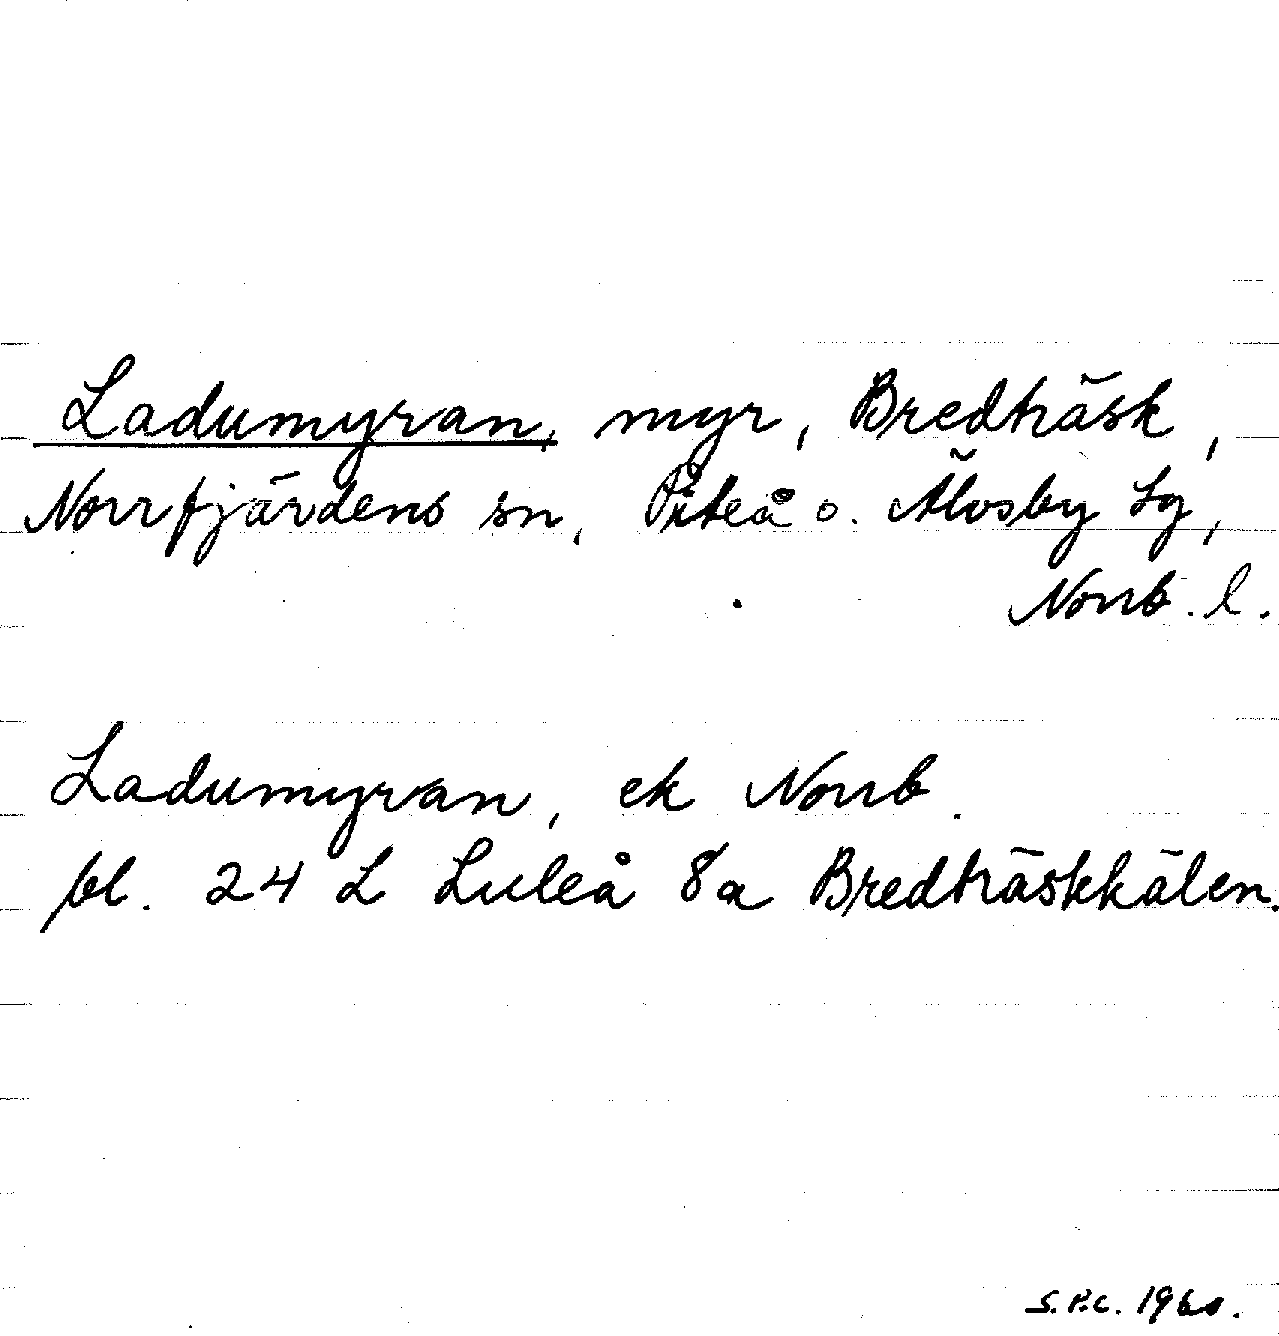 Ladumyran, myr, Bredträsk,
Norrfjärdens sn, Piteå o. Älvsby tg,
Norrb. l.
Ladumyran, ek Norrb.
bl. 24 L Luleå 8a Bredträskkälen.
S.P.C. 1960.